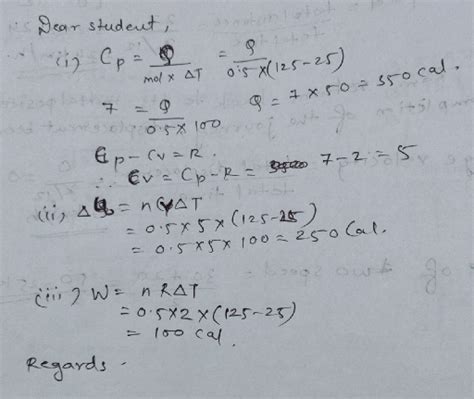 Dear student,
(i) Cp = Q / mol × ΔT = Q / 0.5×(125-25)
7 = Q / 0.5×100 Q = 7×50 = 350 cal.
Cp - Cv = R.
∴ Cv = Cp - R = 7-2 = 5
(ii) ΔQ = n Cv ΔT
= 0.5×5×(125-25)
= 0.5×5×100 = 250 Cal.
(iii) W = nRΔT
= 0.5×2×(125-25)
= 100 cal.
Regards.